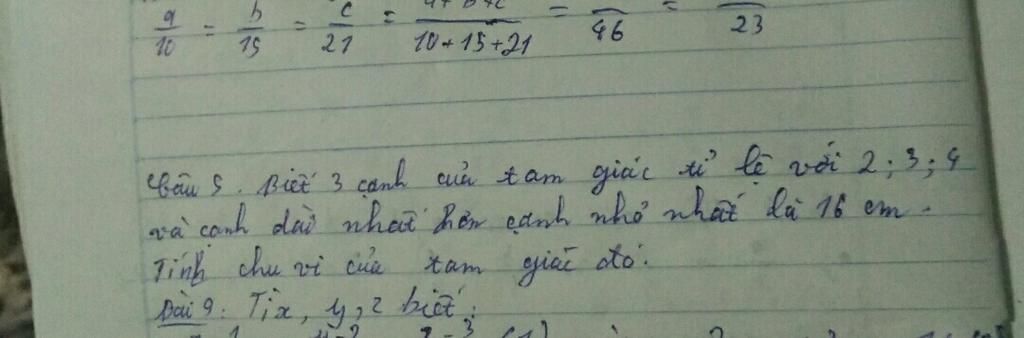 a/10 = b/15 = c/21 = a+b+c/10+15+21 = /46 = /23
Câu 5. Biết 3 cạnh của tam giác tỉ lệ với 2; 3; 4
và cạnh dài nhất hơn cạnh nhỏ nhất là 16 cm.
Tính chu vi của tam giác đó.
Bài 9: Tìx, y, z biết: